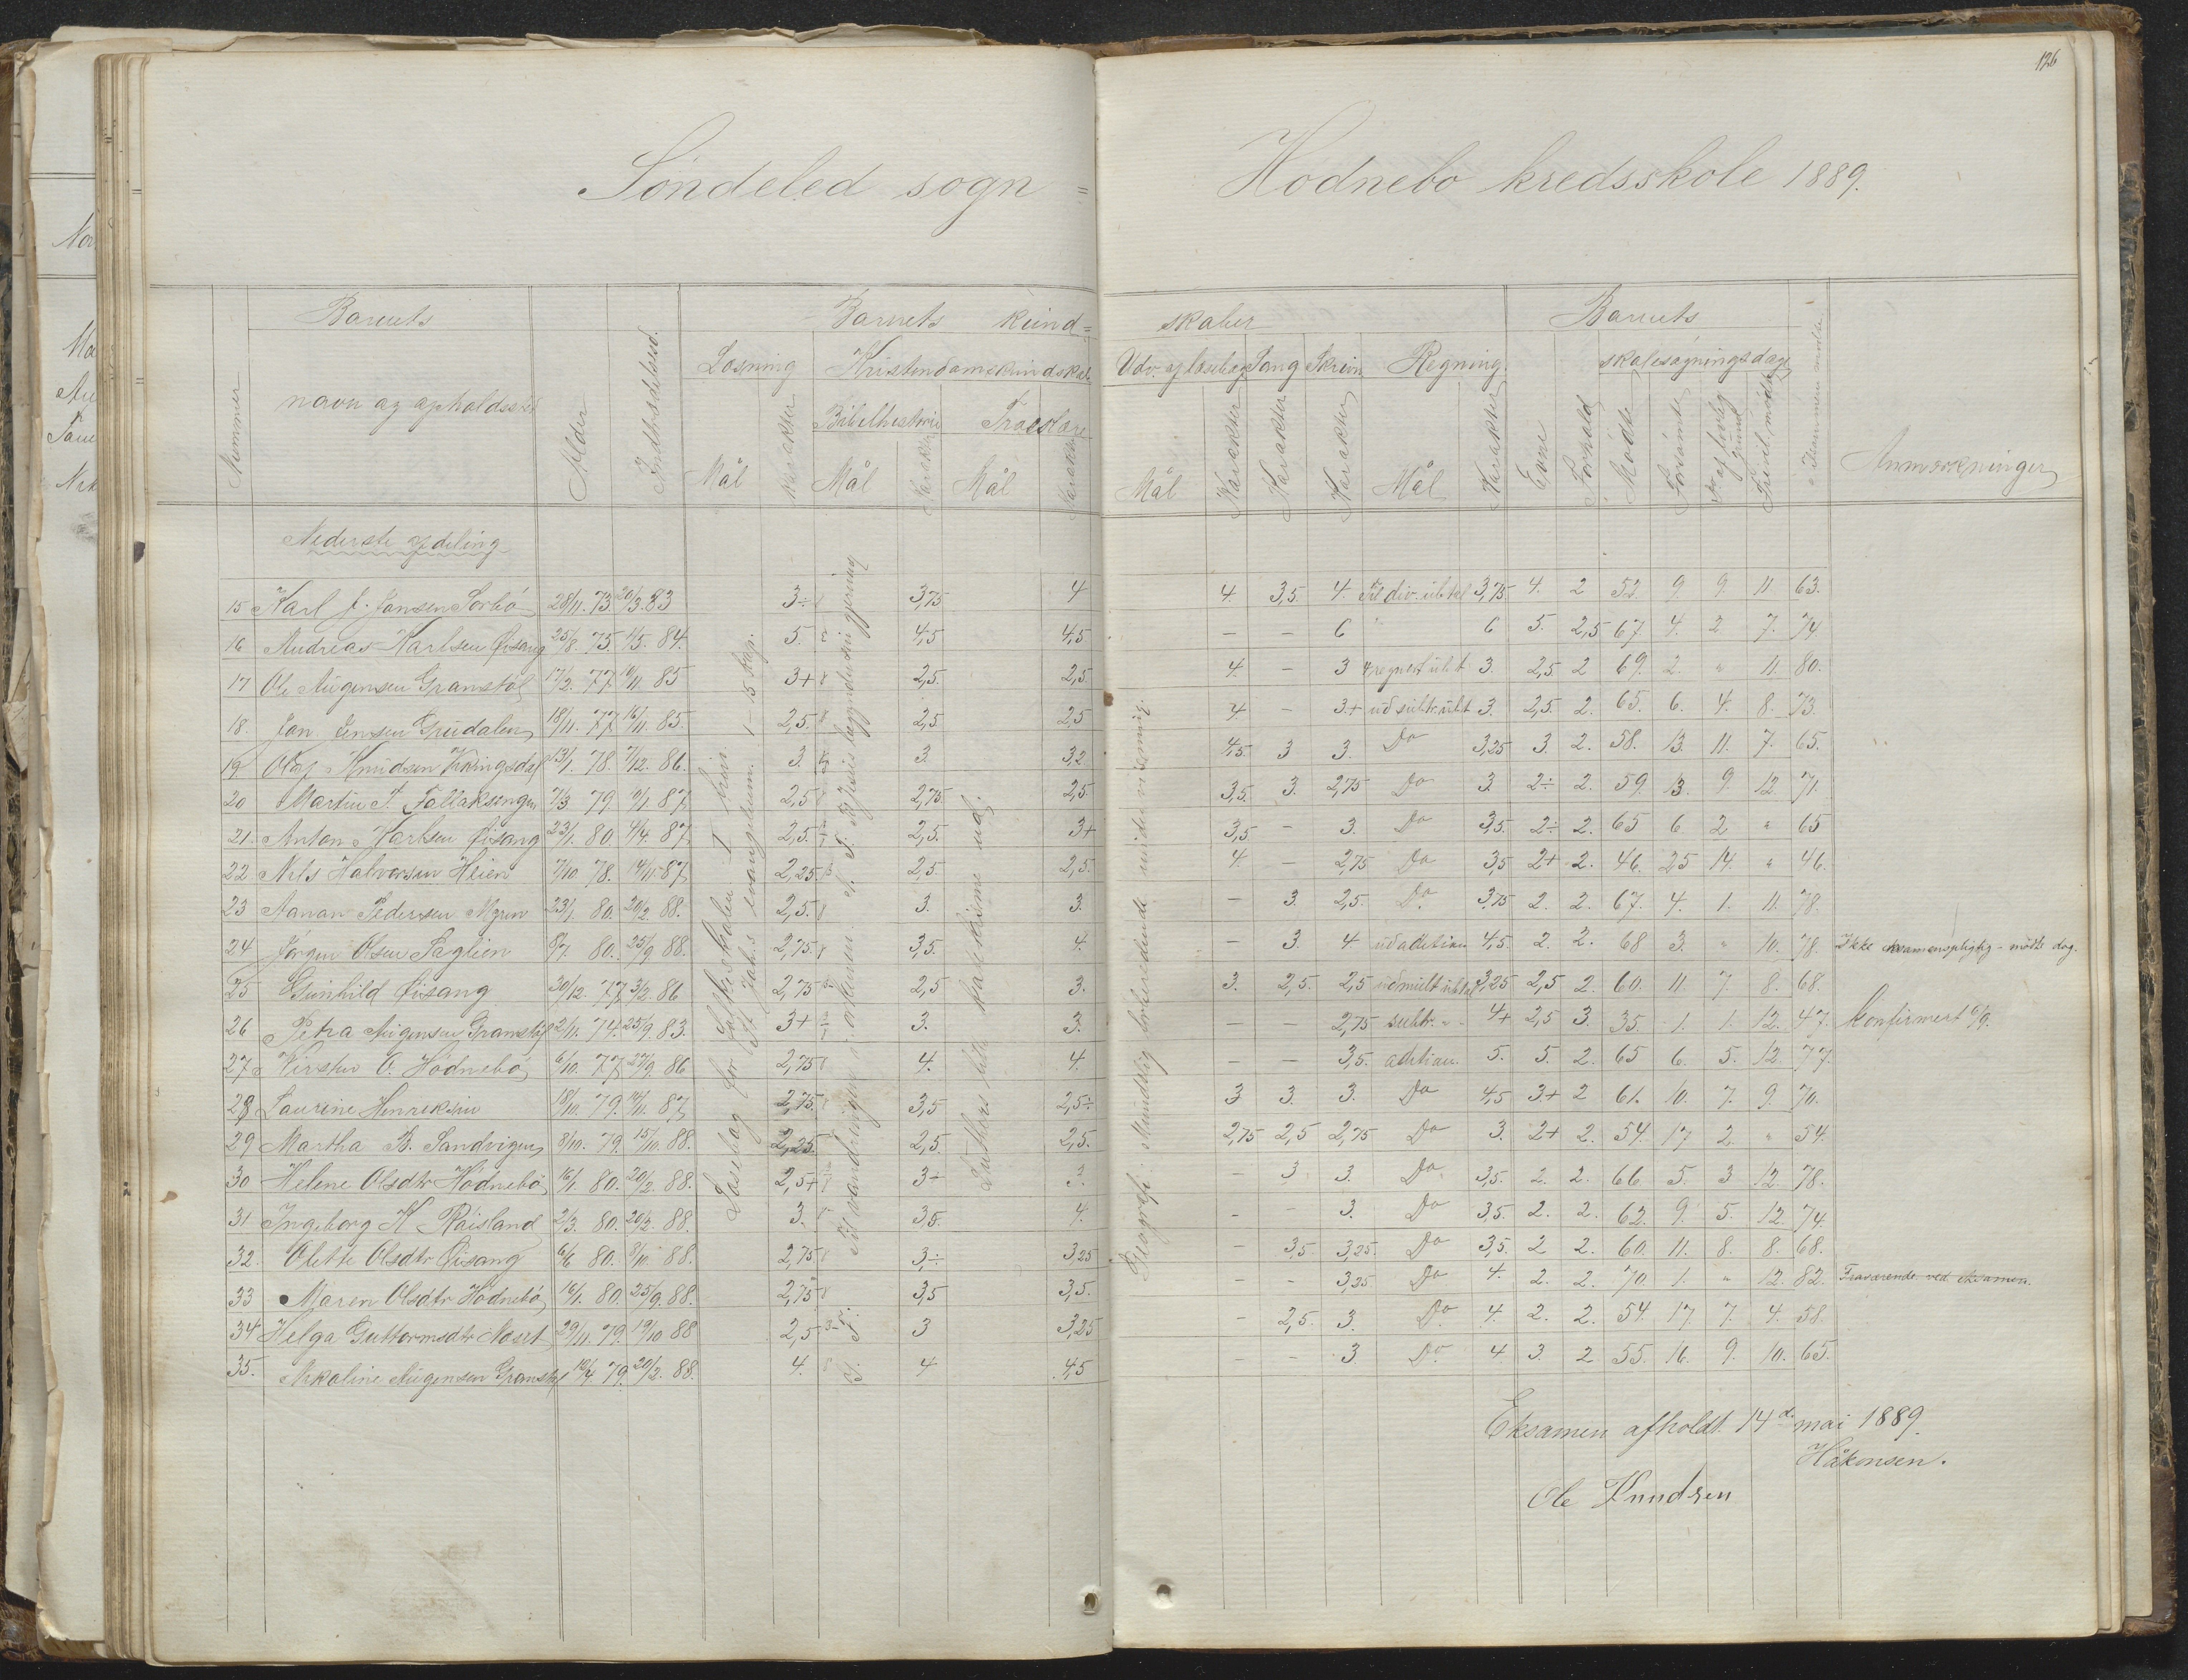 126
Søndeled sogn = Hødnebø kredsskole 1889.
Barnets Barnets kund= skaber Barnets
Læsning Kristendomskundskab Udv. af læsebog Sang Skrivn. Regning skolesøgningsdage
Nummer navn og opholdssted Alder Indtrædelsestid Bibelhistorie Troeslære
Mål Karakter Mål Karakter Mål Karakter Mål Karakter Karakter Karakter Mål Karakter Evne Forhold Mødte Forsømte Anmærkninger
Nederste afdeling
15 Karl J. Jansen Sørbø 28/11. 73 20/3. 83 3÷ 3,75 4 4. 3,5. 4. 3,75 4. 2 52 9. 9 11 63.
16 Andreas Karlsen Øisang 25/8. 75. 1/5. 84. 5. 4,5 4,5 – – 6 6 5. 2,5 67. 4. 2 7. 74
17 Ole Augensen Granstøl 17/2. 77. 10/11. 85 3+ 2,5. 2,5 4. – 3 3. 2,5. 2 69. 2. " 11. 80.
18. Jan Jensen 18/11. 77. 16/11. 85. 2,5. 2,5 2,5 4. – 3+ ud subtr. übt 3. 2,5. 2. 65. 6. 4. 8. 73.
19 Olaf Knudsen Vikingsdal 13/1. 78. 7/12. 86. 3. 3. 3,2 4,5. 3 3. Do 3,25 3. 2. 58. 13. 11. 7. 65.
20 Martin T. Follaksengen 7/3 79. 10/1. 87. 2,5 2,75. 2,5. 3,5. 3. 2,75 Do 3. 2÷ 2. 59. 13. 9. 12 71.
21. Anton Karlsen Øisang 23/1. 80. 4/4. 87. 2,5. 2,5. 3+ 3,5 – 3. Do 3,5. 2÷ 2. 65 6. 2 " 65
22 Nils Halvorsen Heien 7/10 78. 14/11. 87. 2,25. 2,5. 2,5. 4 – 2,75 Do 3,5 2+ 2. 46. 25 14. " 46.
23 Aanan Pedersen Myren 23/1. 80. 20/2. 88. 2,5. 3. 3. – 3. 2,5. Do. 3,75 2. 2. 67. 4. 1. 11. 78.
24 Jørgen Olsen Saglien 8/7. 80. 25/9. 88. 2,75 3,5. 4. – 3. 4 ud adition 4,5. 2. 2. 68 3. " 10. 78. Ikke eksamenspligtig – mødte dog.
25 Gunhild Øisang 30/12. 77. 3/2. 86 2,75 2,5 3. 3. 2,5. 2,5 3,25 2,5 2. 60. 11. 7. 8. 68.
26 Petra Augensen Granstøl 2/11. 74. 25/9. 83. 3+ 3. 3. – – 2,75 subtr. " 4+ 2,5 3. 35. 1. 1. 12. 47. Konfirmert 6/9.
27 Kirsten O. Hødnebø 6/10. 77. 27/9. 86 2,75 4. 4. – – 3,5. adition. 5. 5. 2. 65 6. 5. 12. 77.
28 Laurine Henriksen 18/10. 79. 14/11. 87 2,75. 3,5 2,5÷ 3 3. 3. Do 4,5 3+ 2 61. 10. 7. 9 70.
29 Martha B. Sandvigen 8/10. 79. 15/10. 88. 2,25. 2,5. 2,5. 2,75 2,5 2,75 Do 3. 2+ 2. 54. 17 2. " 54.
30 Helene Olsdtr Hødnebø 16/1. 80. 20/2. 88. 2,5+ 3÷ 3. – 3 3. Do. 3,5. 2. 2. 66. 5. 3 12. 78.
31 Ingeborg K. Røisland 2/3. 80. 20/2. 88. 3. 3,5. 4. – – 3. Do 3,5. 2. 2. 62. 9. 5. 12. 74.
32. Olette Olsdtr Øisang 6/6 80. 8/10. 88. 2,75 3÷ 3,25 – 3,5. 3,25. Do 3,5. 2 2. 60. 11. 8. 8. 68.
33 Maren Olsdtr Hødnebø 16/1. 80. 25/9. 88. 2,75 3,5 3,5. – – 3,25 Do 4. 2. 2. 70. 1. " 12. 82. Fraværende ved eksamen.
34 Helga Guttormsdtr Næset 29/11. 79. 19/10 88 2,5 3 3,25 – 2,5. 3. Do. 4. 2. 2. 54. 17. 7. 4. 58.
35. Nikoline Augensen Granstøl 10/4 79. 20/2. 88. 4. 4. 4,5 – – 3. Do. 4. 3. 2 55. 16. 9. 10. 65.
Læsebog for folkeskolen I hein.
St. Johs evangelium. 1–15 kap.
Til vandringen i ørkenen. N. T. Jesu
Luthers lille katekisme ud.
Geografi: Mundtlig forberedende undervisning.
Eksamen afholdt 14de mai 1889.
Håkonsen.
Ole Knudsen